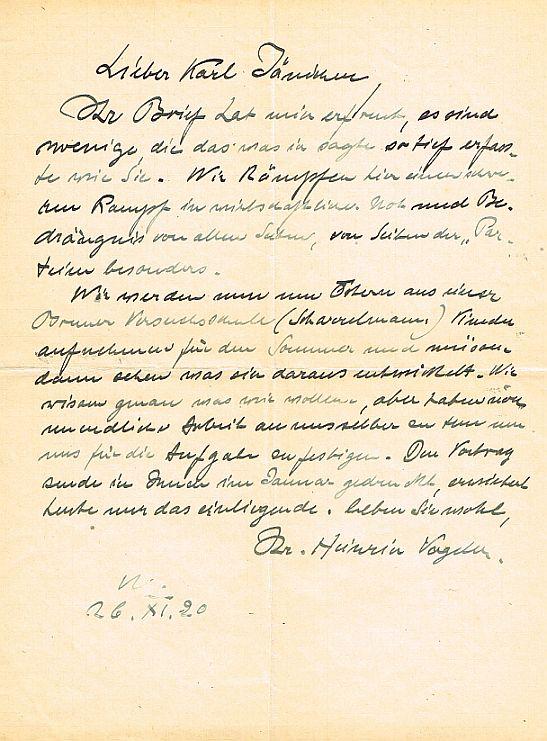 Lieber Karl Jänichen
Ihr Brief hat mich erfreut, es sind
wenige, die das was ich sagte so tief erfass-
te wie Sie. Wir kämpfen hier einen schwe-
ren Kampf in wirtschaftlicher Not und Be-
drängnis von allen Seiten, von Seiten der „Par-
teien besonders.
Wir werden nun um Ostern aus einer
Bremer Versuchsschule (Scharrelmann) Kinder
aufnehmen für den Sommer und müssen
dann sehen was sich daraus entwickelt. Wir
wissen genau was wir wollen, aber haben noch
unendliche Arbeit an uns selber zu tun um
uns für die Aufgabe zu festigen. Den Vortrag
sende ich Ihnen im Januar gedruckt,
heute nur das einliegende. Leben Sie wohl,
Ihr. Heinrich Vogeler.
26. XI. 20